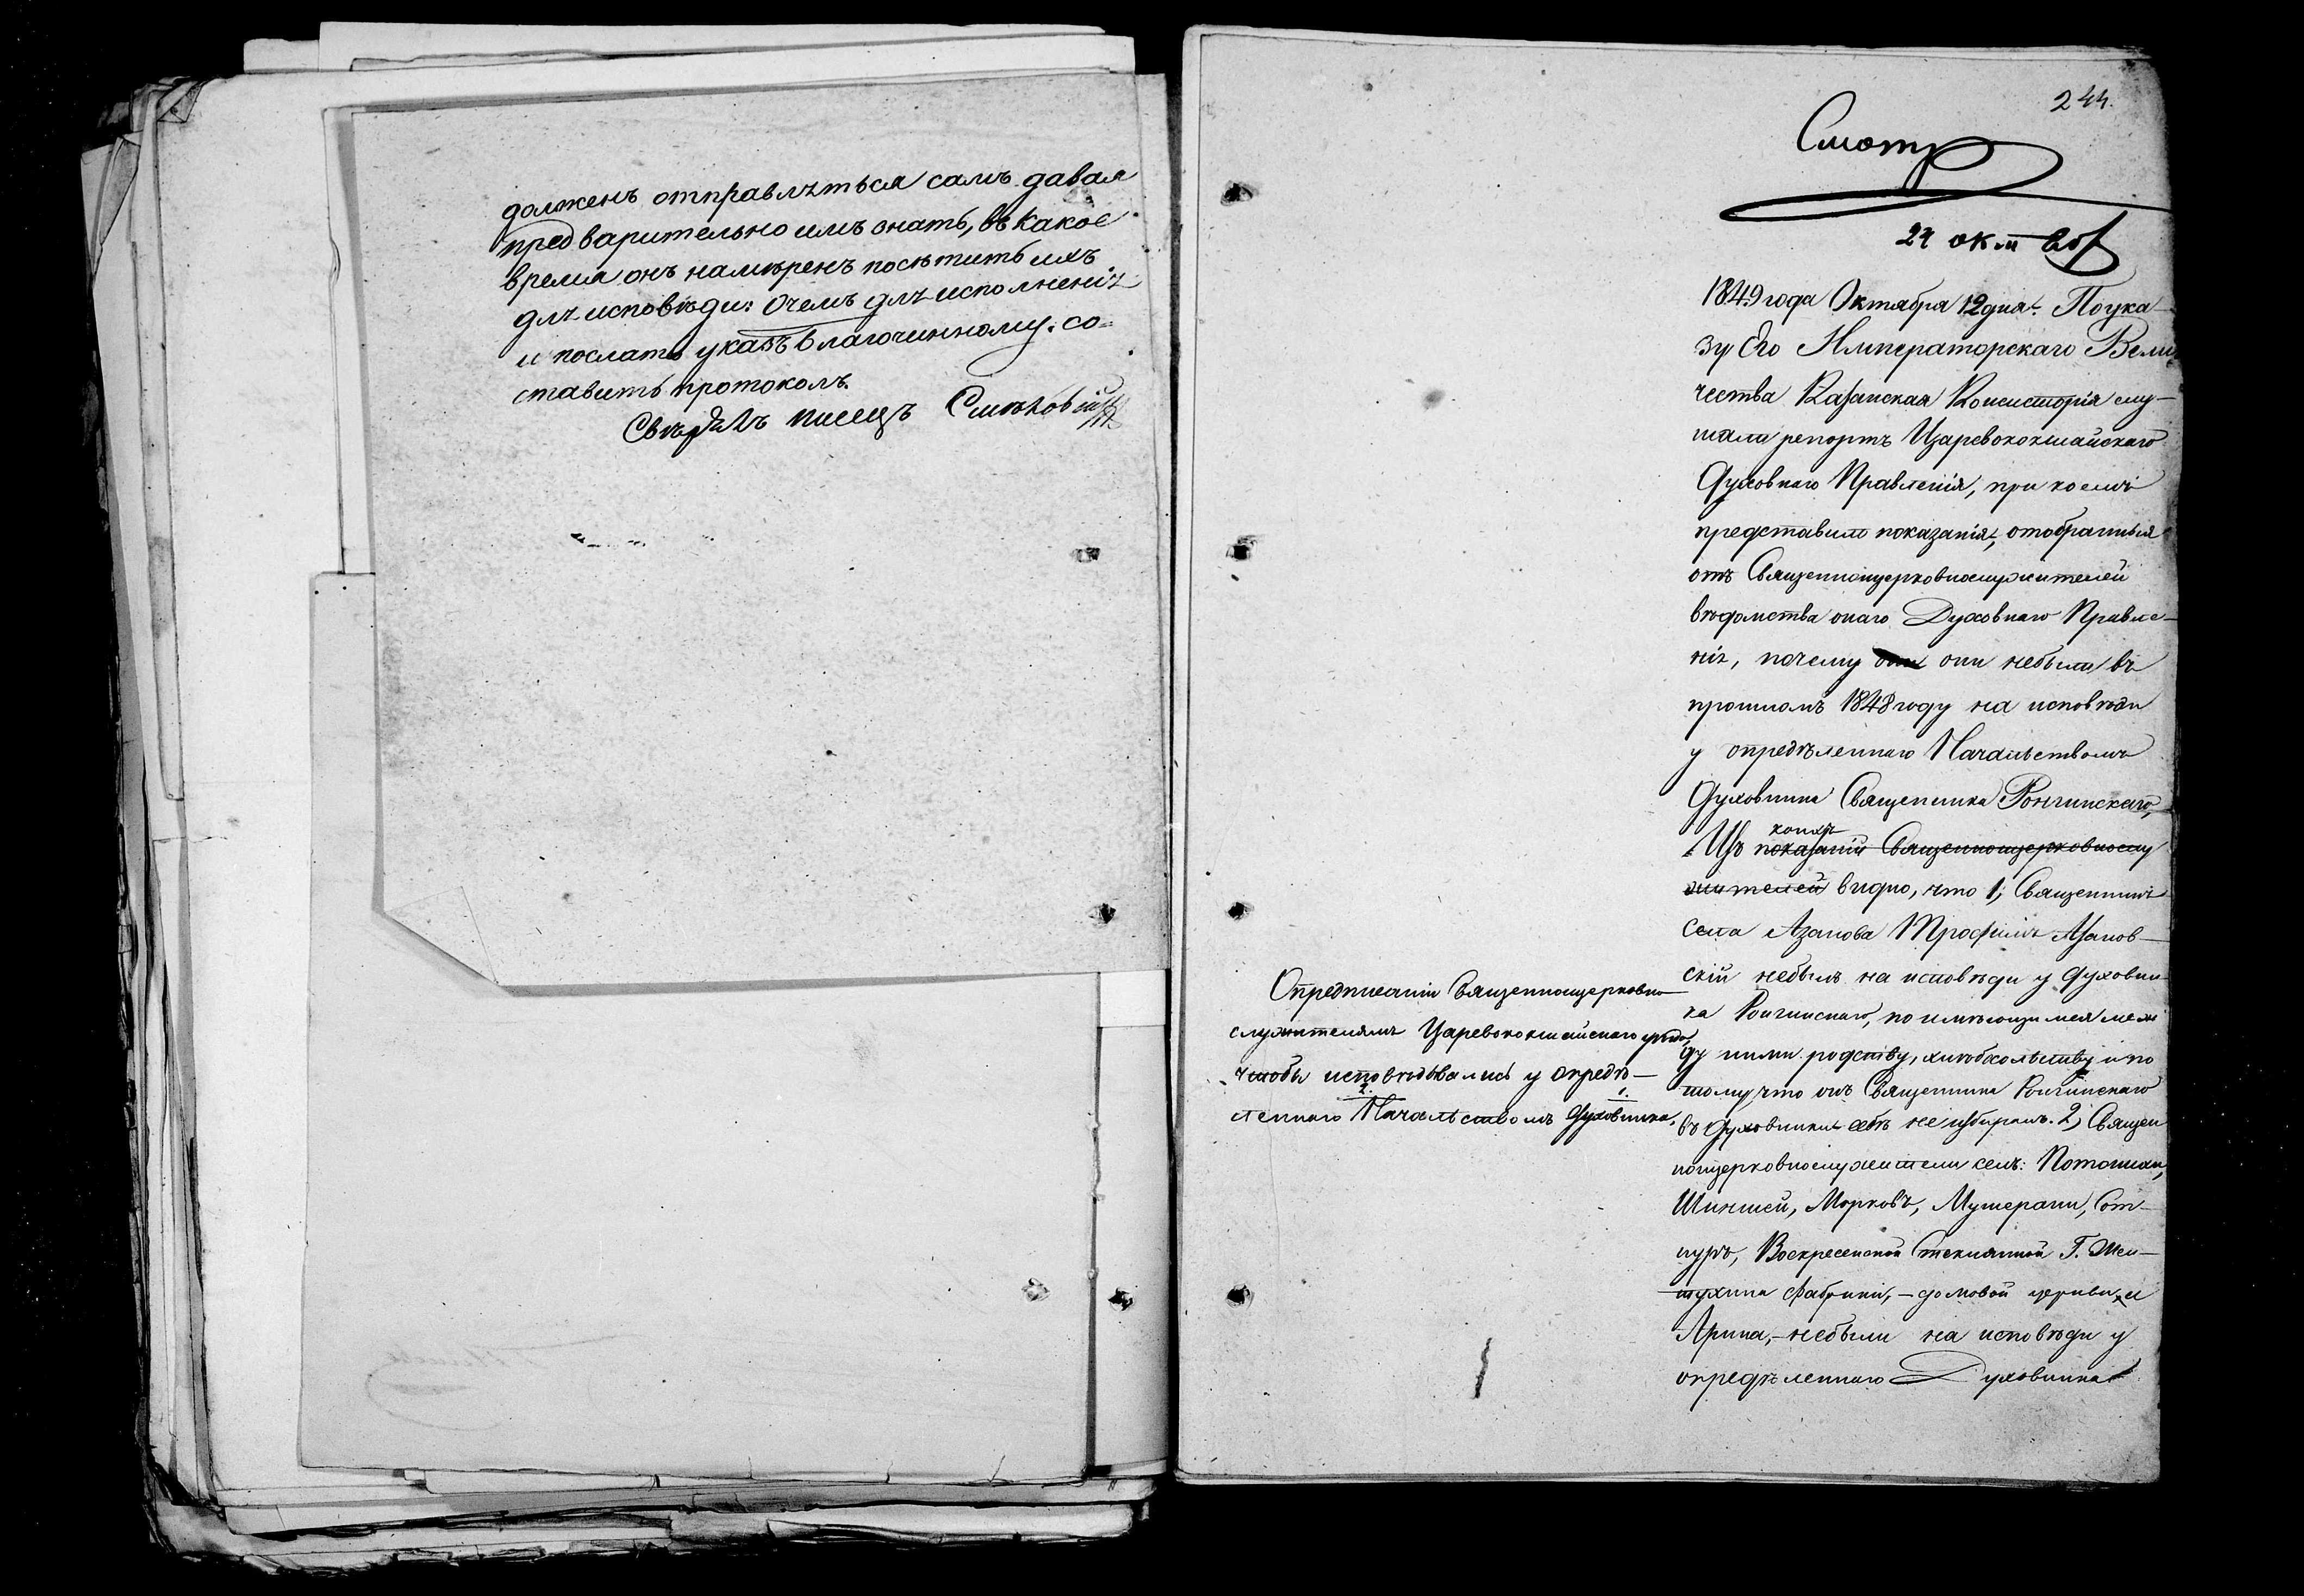 долженъ отправляться самъ давая
предварительно имъ знать, въ какое
время онъ намѣренъ посѣтить ихъ
для исповѣди: О чемъ для исполненія
и послать указъ Благочинному. со=
ставить протоколъ.
Свѣрялъ писецъ
244.
Смотр
24 окт
1849 года Октября 12 дня. По ука-
зу Его Императорскаго Вели-
чества Казанская Консисторія слу-
шала репортъ Царевококшайскаго
Духовнаго Правленія, при коемъ
представило показанія, отобранныя
отъ Священноцерковнослужителей
вѣдомства онаго Духовнаго Правле-
нія, почему они они небыли въ
прошломъ 1848 году на исповѣди
у опредѣленнаго Начальствомъ
Духовника Священника Рончинскаго,
коихъ
Изъ показаній Священноцерковнослу
жителей видно, что 1, Священникъ
села Азанова Трофимъ Азанов-
скій небылъ на исповѣди у духовни-
ка Рончинскаго, по имѣющимся меж
ду ними родству, хлѣбосольству и по
тому что онъ Священника Рончинскаго
въ духовники себѣ не избиралъ. 2, Священ
ноцерковнослужители селъ:
Шиньшей, Морковъ, Мушерани, Сот-
нуръ, Воскресенской Стеклянной Г.
фабрики, - домовой церкви, и
Арина, - небыли на исповѣди у
опредѣленнаго Духовника
О предписаніи Священноцерковно-
служителямъ Царевококшайскаго уѣзда,
чтобы исповѣдывались у опредѣ-
2. 1.
леннаго Начальствомъ Духовника.